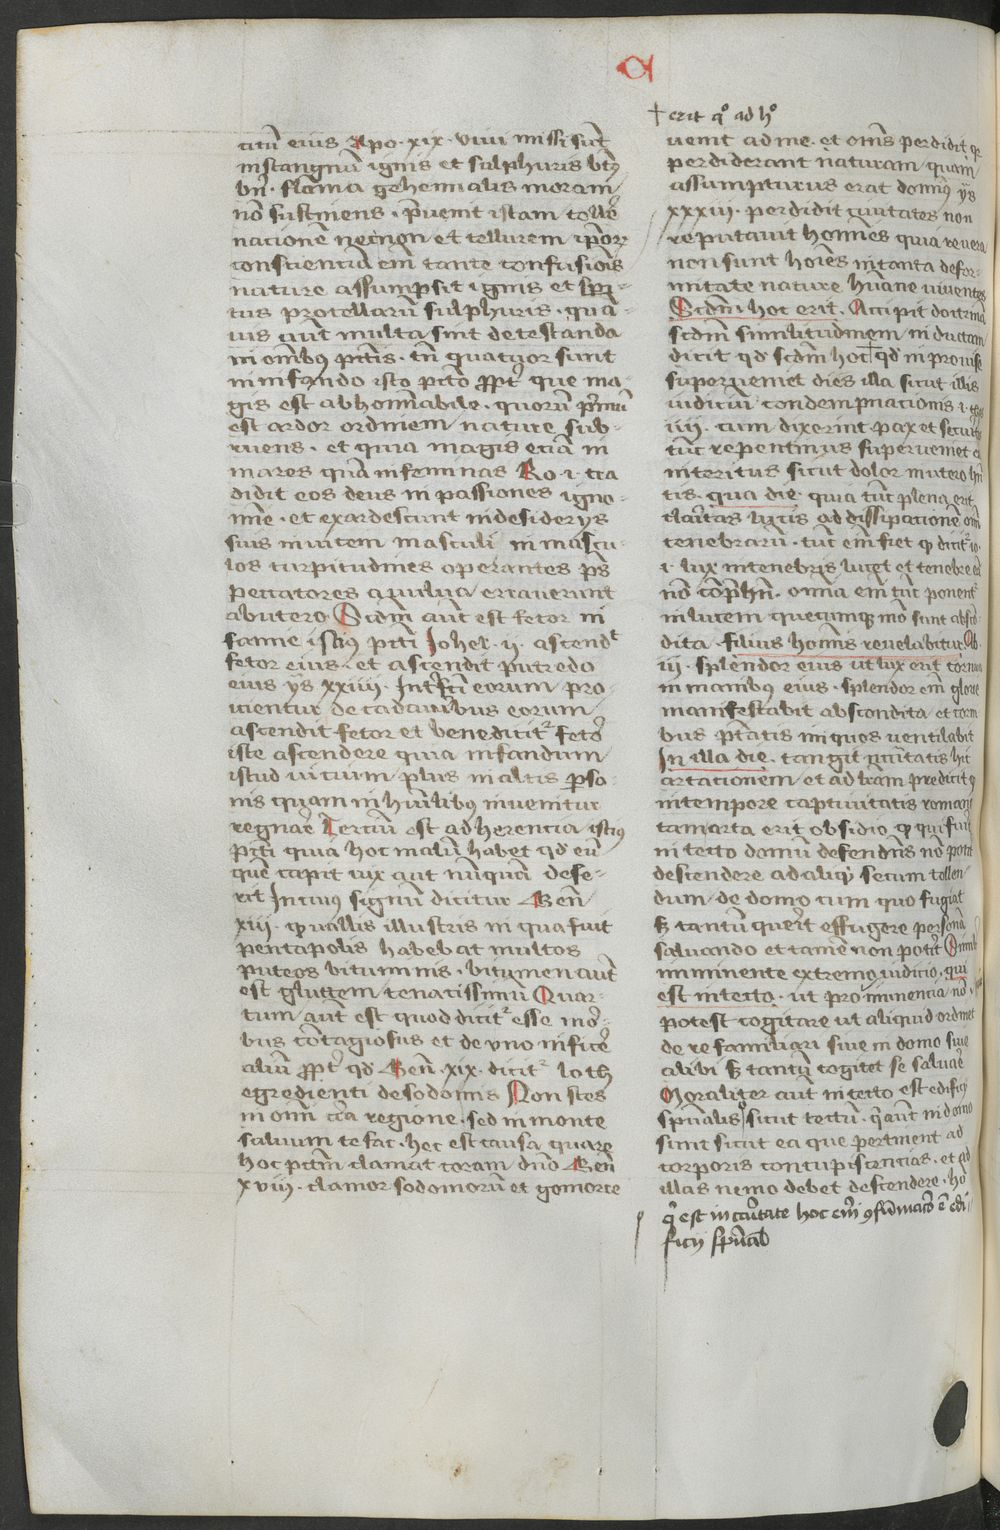 α
† erit qͦ ad hͦ
titū eius Apo. xix. viui missi sūt
instangnū ignis et sulphuris vbi
bn̄. flama gehennalis moram
nō sustinens. p̄uenit istam tolle
nationē necnon et tellurem ip̄oꝝ
conscientiā em̄ tante confusiōis
nature assumpsit ignis et spi-
tus procellarū sulphuris. quā-
uis aūt multa sint detestanda
in om̄ibꝰ pctīs. tn̄ quatuor sunt
in infando isto pctō ꝓpt̄ que ma-
gis est abhominabile. quorū p̄mū
est ardor ordinem nature sub-
ruens. et quia magis eciā in
mares quā in feminas Ro. i. tra
didit eos deus in passiones igno-
mie. et exardescunt in desiderijs
suis inuicem masculi in mascu-
los turpitudines operantes p̄s
peccatores a vulua errauerunt
abutero Scdm̄ aūt est fetor in
famie istius pcti Johel. ij. ascend
fetor eius. et ascendit putredo
eius ys xxiiii. Int̄fcti eorum pro-
icientur de cadaueribus eorum
ascendit fetor et bene dicit fetor
iste ascendere quia infandum
istud uicium plus in altis p̄so-
nis quam in humilibꝰ inuenitur
regnare Terciū est adherencia istius
pcti quia hoc malū habet qd eū
quē capit uix aut nūquā dese-
rit In cuius signū dicitur Gen̄
xiii. ꝙ vallis illustris in qua fuit
pentapolis habebat multos
puteos bituminis. bitumen aūt
est glutem tenacissimū Quar-
tum aūt est quod dicit esse mor-
bus cōtagiosus et de vno inficere
aliū ꝓpt̄ qd Gen̄. xix. dicit loth
egredienti de sodomis Non stes
in om̄i cca regione. sed in monte
saluum te fac. hec est causa quare
hoc pctm̄ clamat coram dn̄o Gen̄
xviij. clamor sodomorū et gomorre
uenit ad me. et om̄s perdidit qꝫ
perdiderant naturam quam
assumpturus erat domin̄s ys
xxxiij. perdidit ciuitates non
reputauit homines quia reuera
non sunt hoīes in tanta defor-
mitate nature hūane uiuentes
Scdm̄ hoc erit. Accipit doctrinā
scdm̄ similitudinem inductam
dicit qd scdm̄ hoc † qd in prouise
superueniet dies illa sicut illis
iudiciū condempnationis i. tes
iiij. cum dixerint pax et securitas
tūc repentinus superueniet
interitus sicut dolor in utero hn̄
tis. qua die. quia tūc plena erit
claritas lucis ad dissipationē om̄
tenebrarū. tūc em̄ fiet ꝙ dicit io.
i. lux in tenebris lucet et tenebre eā
nō cōp̄hn̄. om̄ia em̄ tūc ponent
in lucem quecunqꝫ mō sunt abscō-
dita. filius homis reuelabitur. Ab.
iij. splendor eius ut lux erit cornua
in manibꝰ eius. splendor em̄ glorie
manifestabit abscondita et corni
bus p̄tatis iniquos uentilabit
In illa die. tangit
artationem et ad tram predicit ꝙ
in tempore captiuitatis romane
tam arta erit obsidio ꝙ qui fuit
in tecto domū defendēs nō potit
descendere ad aliqd secum tollen-
dum de domo cum quo fugiat
sꝫ tantū querit effugere personā
saluando et tamē non potit
imminente extremo iudicio. qui
est in tecto. ut pro imminencia nō
potest cogitare ut aliquid ordinet
de re familiari siue in domo siue
alibi sꝫ tantū cogitet se saluare
Moraliter aūt in tecto est edificij
spūalis sicut tectū. q̄ aūt in domo
sunt sicut ea que pertinent ad
corporis concupiscencias. et ad
illas nemo debet descendere. hō
q̄ est in caritate hoc em̄ ꝯsumacō ē edi-
ficij spūalis